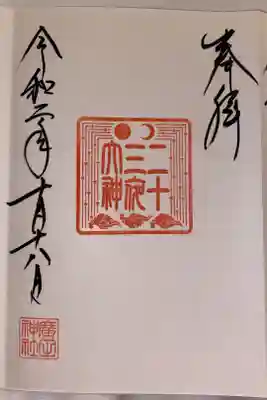 奉拝
二十
三夜
大神
令和二年十月十八日
神社